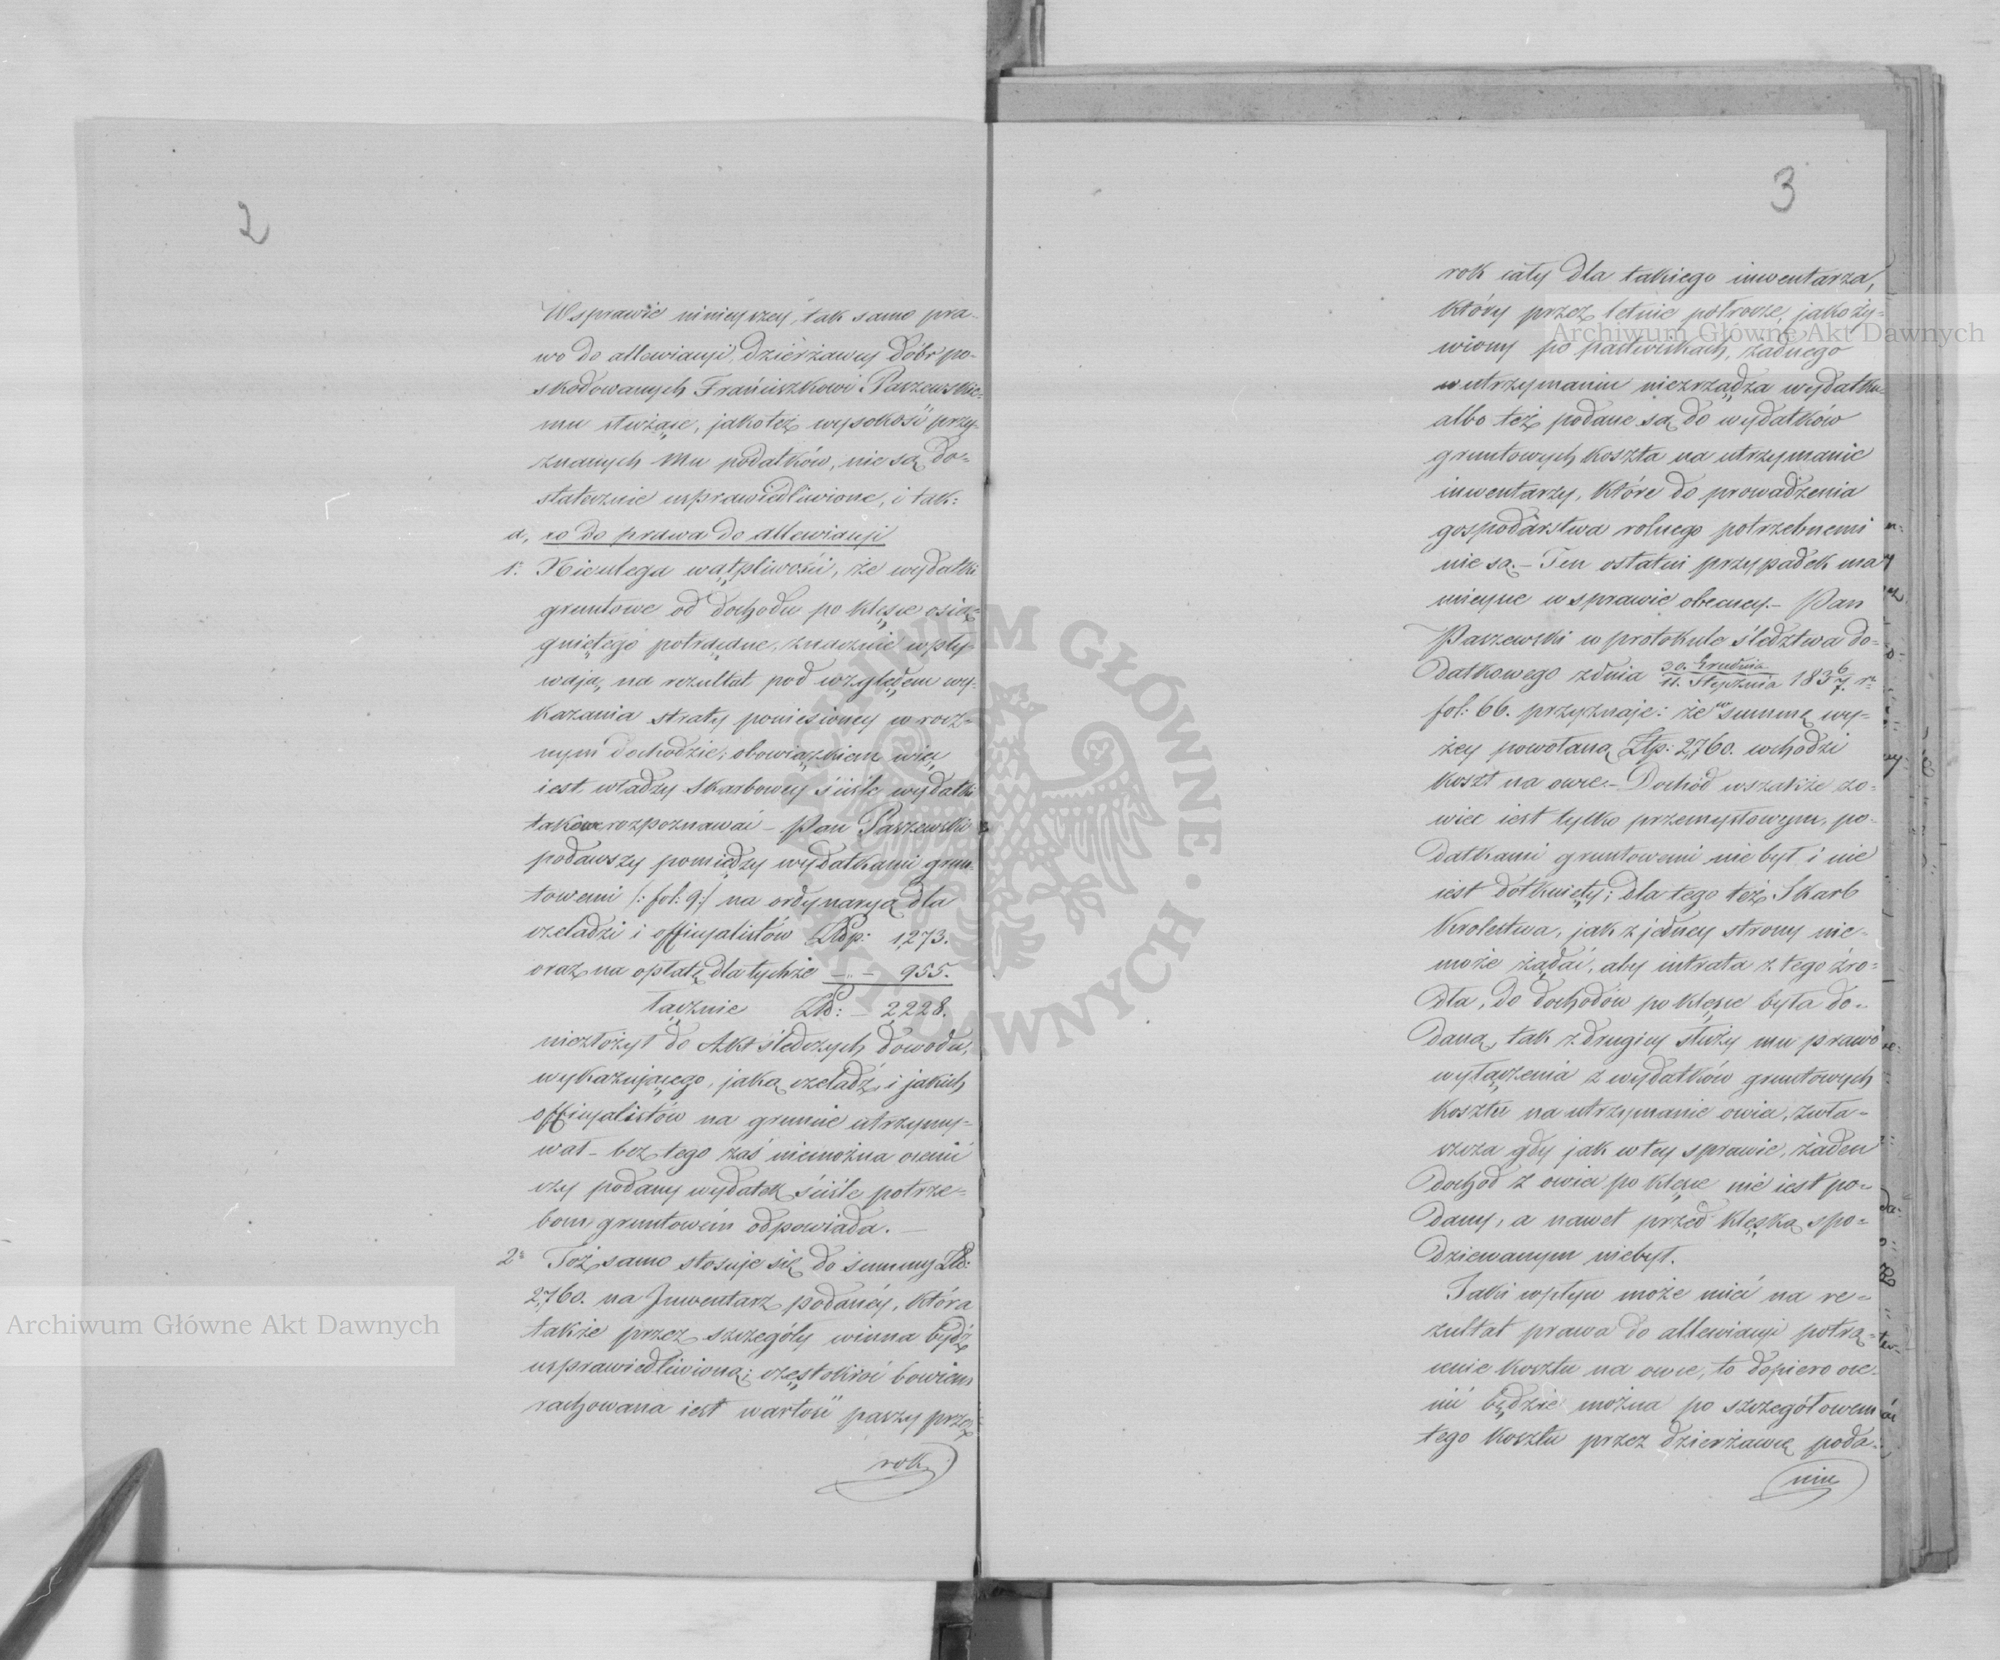 2
W sprawie ninieyszey, tak samo pra-
wo do allewiacyi, dzierżawcy dóbr po-
szkodowanych Franciszkowi Paszewskie-
mu służące, jakoteż wysokość przy-
znanych Mu podatków, nie są do-
statecznie usprawiedliwione, i tak:
a, co do prawa do allewiacyi
1° Nieulega wątpliwości, że wydatki
gruntowe od dochodu po klęsce osią-
gniętego potrącane, znacznie wpły-
wają, na rezultat pod względem wy-
kazania straty poniesioney w rocz-
nym dochodzie; obowiązkiem więc
iest władzy Skarbowey ściśle wydatki
takowe rozpoznawać – Pan Paszewski
podawszy pomiędzy wydatkami grun-
towemi /: fol: 9:/ na ordynaryą dla
czeladzi i officyalistów Złp: 1,273.
oraz na opłatę dla tychże – „ – 955.
Łącznie Złp: – 2,228.
niezłożył do Akt śledczych dowodu,
wykazującego, jaką czeladź i jakich
officyalistów na gruncie utrzymy-
wał – bez tego zaś niemożna ocenić
czy podany wydatek ściśle potrze-
bom gruntowym odpowiada. –
2° Toż samo stosuje się do summy Złp:
2,760. na Inwentarz podaney, która
także przez szczegóły winna bydź
usprawiedliwioną; częstokroć bowiem
rachowana iest wartość paszy przez
rok
3
rok cały dla takiego inwentarza,
który przez letnie półrocze, jako ży-
wiony po pastwiskach, żadnego
w utrzymaniu niezrządza wydatku
albo też podane są do wydatków
gruntowych koszta na utrzymanie
inwentarzy, które do prowadzenia
gospodarstwa rolnego potrzebnemi
nie są. – Ten ostatni przypadek ma
mieysce w sprawie obecney. – Pan
Paszewski w protokule śledztwa do-
datkowego z dnia 30. Grudnia / 11. Stycznia 1836/7. r.
fol: 66. przyznaje: że w summę wy-
żey powołaną Złp: 2,760. wchodzi
koszt na owce. – Dochód wszakże z o-
wiec iest tylko przemysłowym, po-
datkami gruntowemi nie był i nie
iest dotknięty; dla tego też Skarb
Królestwa, jak z jedney strony nie-
może żądać, aby intrata z tego źró-
dła, do dochodów po klęsce była do-
daną, tak z drugiey służy mu prawo
wyłączenia z wydatków gruntowych
kosztu na utrzymanie owiec, zwła-
szcza gdy jak w tey sprawie, żaden
dochód z owiec po klęsce nie iest po-
dany, a nawet przed klęską spo-
dziewanym niebył.
Jaki wpływ może mieć na re-
zultat prawa do allewiacyi potrą-
cenie kosztu na owce, to dopiero oce-
nić będzie można po szczegółowem
tego kosztu przez dzierżawcę poda-
niu
Archiwum Główne Akt Dawnych
Archiwum Główne Akt Dawnych
ARCHIWUM GŁÓWNE AKT DAWNYCH